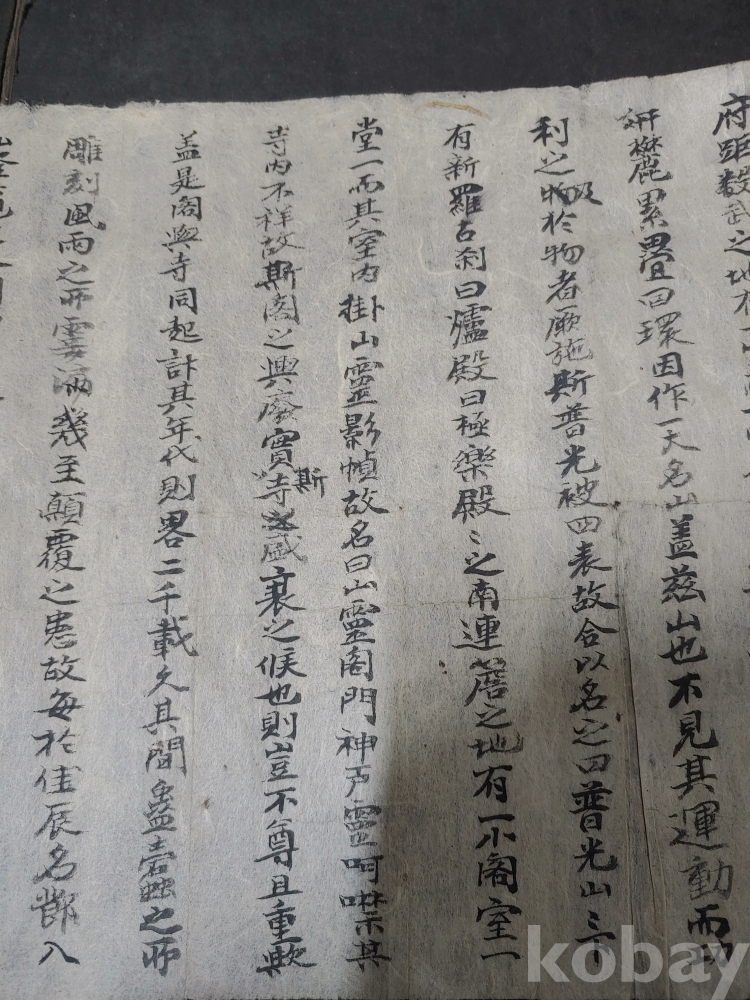 府距數武之地有
妍樷麗累疊曰環因作一大名山盖兹山也不見其運動而功
利之及於物者厥施斯普光被四表故合以名之曰普光山山下
有新羅古刹曰爐殿曰極樂殿殿之南連簷之地有一小閣室一
堂一而其室內掛山靈影幀故名曰山靈閣門神户靈呵噤其
寺內不祥故斯閣之興廢實斯寺盛衰之候也則豈不尊且重歟
盖是閣與寺同起計其年代則畧二千載久其間蟲蠧之所
雕刻風雨之所霑洒幾至顛覆之患故每於佳辰名節入
kobay